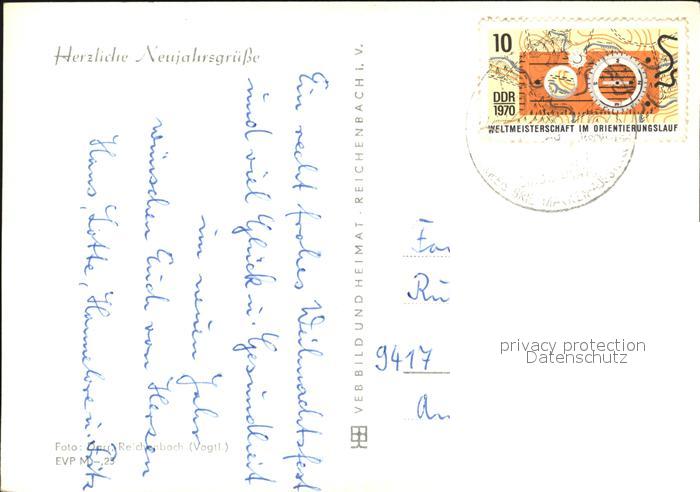 Herzliche Neujahrsgrüße
Ein recht frohes Weihnachtsfest
und viel Glück u. Gesundheit
im neuen Jahr
wünschen Euch von Herzen
Hans, Lotte, Hannelore u. Götz
Foto: Darr, Reichenbach (Vogtl.)
EVP M –,25
VEB BILD UND HEIMAT · REICHENBACH i. V.
10
DDR
1970
WELTMEISTERSCHAFT IM ORIENTIERUNGSLAUF
Fa
Ru
9417
An
privacy protection
Datenschutz